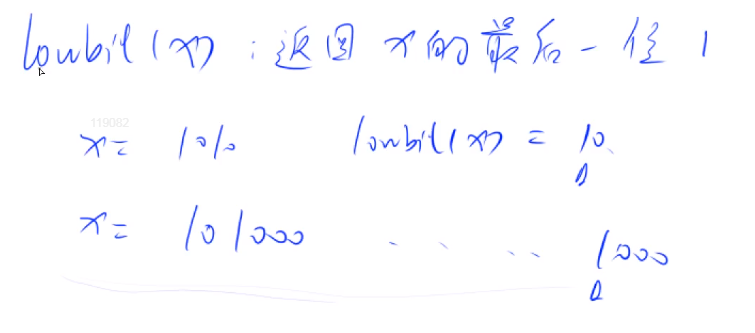 lowbit(x)：返回 x 的最后一位 1
119082
x = 1010 lowbit(x) = 10
x = 101000 ... .. 1000